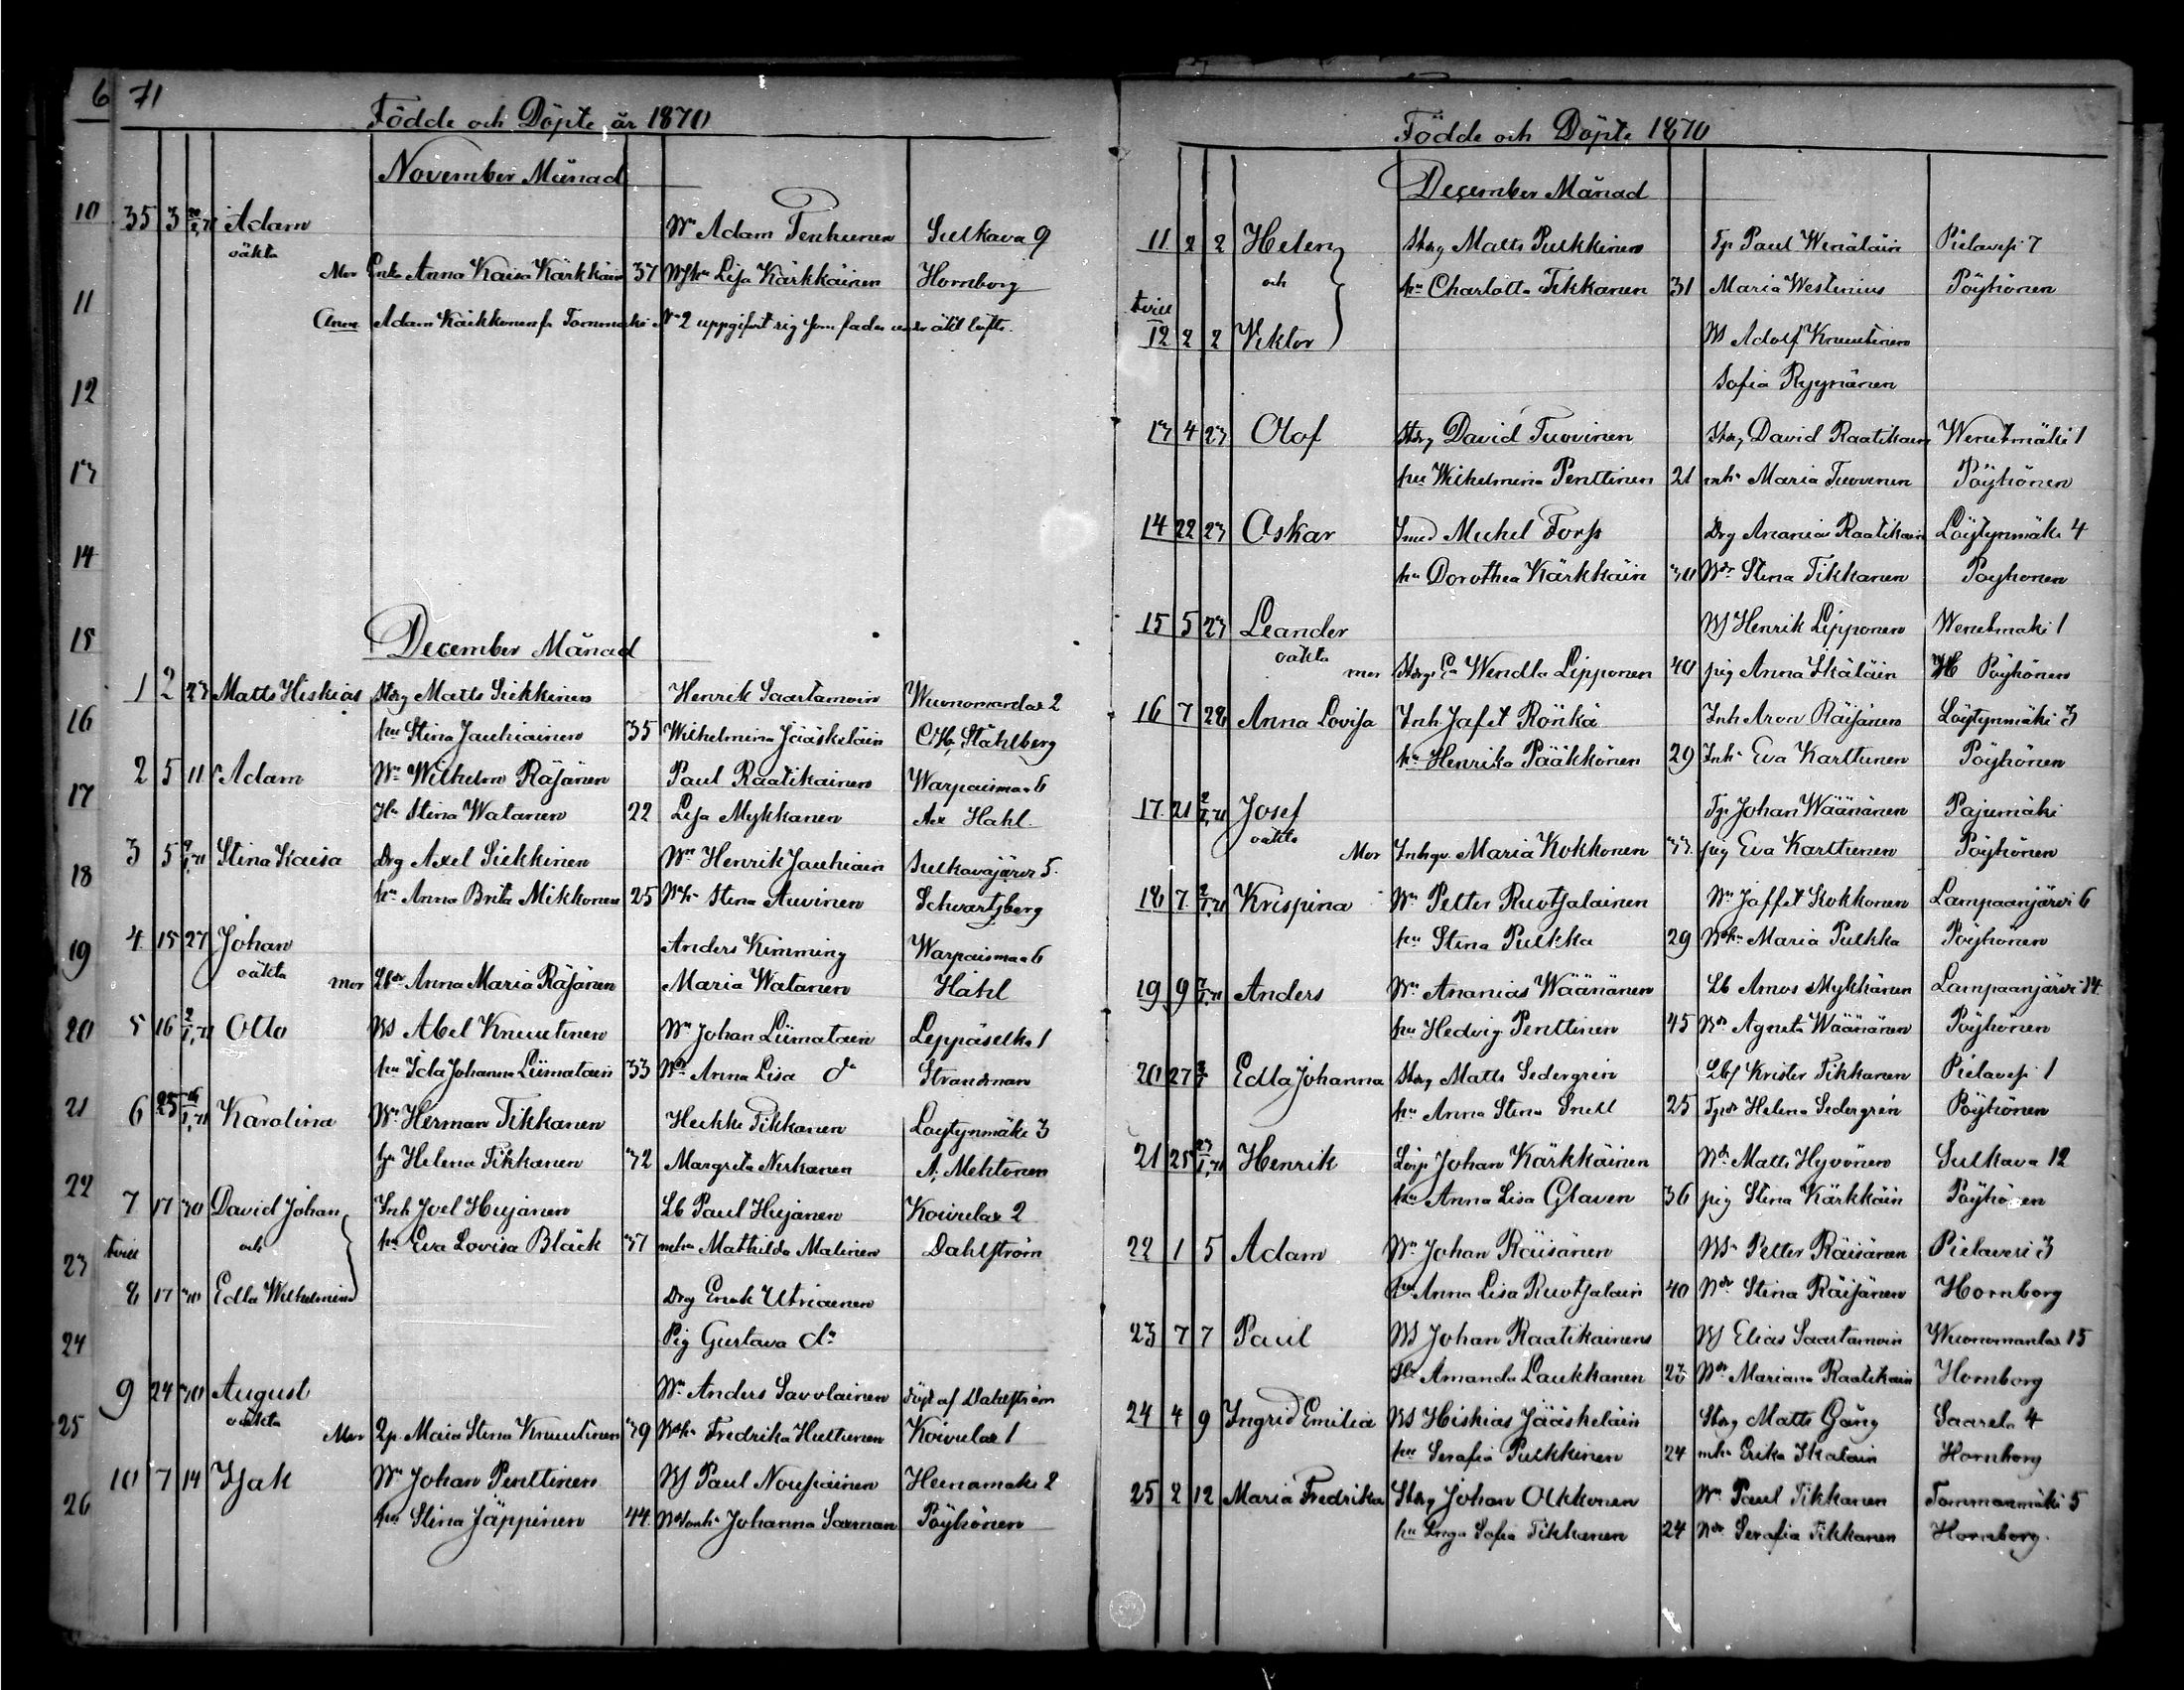 6 71
Födde och Döpte år 1870
November Månad
10 35 3 Adam Wn Adam Tenhunen Sulkava 9
oäkta Mor Enka Anna Kaisa Kärkkäin 37 Lisa Kärkkäinen Hornborg
11 Anm Adam Kaikkonen fr Tommaki No 2 uppgifvit sig som fader under äkt löfte.
12
13
14
15 December Månad
1 2 27 Matts Hiskias Storg Matts Sikkinen Henrik Saastamoin Wuonamanlax 2
16 hu Stina Jauhiainen 35 Wilhelmina Jääskeläin Ståhlberg
2 5 11 Adam Wn Wilhelm Räsänen Paul Raatikainen Warpaismaa 6
17 Hu Stina Watanen 22 Lisa Mykkanen Hahl
3 5 Stina Kaisa Drg Axel Sikkinen Wn Henrik Jauhiain Sulkavajärvi 5.
18 hu Anna Brita Mikkonen 25 Stina Auvinen Schwartzberg
4 15 27 Johan Anders Kimming Warpaismaa 6
19 oäkta mor Anna Maria Räsänen Maria Watanen Hahl
20 5 16 Otto Abel Knuutinen Wn Johan Liimatain Leppäselkä 1
hu Ida Johanna Liimatain 33 Anna Lisa do Strandman
21 6 25 Karolina Wn Herman Tikkanen Heikki Tikkanen Löytynmäki 3
hu Helena Tikkanen 32 Margreta A. Mehtonen
22
7 17 30 David Johan Inh Joel Lb Paul Koivulax 2
tvill och hu Eva Lovisa Bläck 37 Mathilda Malinen Dahlström
23
8 17 30 Edla Wilhelmina Drg Utriainen
24 Pig Gustava do
9 24 30 August Wn Anders Savolainen döpt af Dahlström
25 oäkta Mor Maia Stina Knuutinen 39 Fredrika Huttunen Koivulax 1
10 7 14 Isak Wn Johan Penttinen Paul Nousiainen Heinamäki 2
26 hu Stina Jäppinen 44. Johanna Saxman Pöyhönen
Födde och Döpte 1870
December Månad
11 2 2 Helen Storg Matts Pulkkinen Paul Wenäläin Pielavesi 7
och hu Charlotta Tikkanen 31 Maria Westinius Pöyhönen
tvill
12 2 2 Viktor Adolf Knuutinen
Sofia Ryynänen
13 4 23 Olof Storg David Tuovinen Storg David Raatikain Wenetmäki 1
hu Wilhelmina Penttinen 21 Maria Tuovinen Pöyhönen
14 22 23 Oskar Smed Michel Forss Drg Ananias Raatikain Löytynmäki 4
hu Dorothea Kärkkäin 30 Stina Tikkanen Pöyhönen
15 5 23 Leander Henrik Lipponen Wenetmäki 1
oäkta mor Wendla Lipponen 40 pig Anna Ikäläin Pöyhönen
16 7 28 Anna Lovisa Inh Jafet Rönkä Inh Aron Räisänen Löytynmäki 3
hu Henrika Pääkkönen 29 Eva Karttunen Pöyhönen
17 21 Josef Johan Wäänänen Pajumäki
oäkta Mor Maria Kokkonen 33. pig Eva Karttunen Pöyhönen
18 7 Krispina Wn Petter Ruotsalainen Wn Jaffet Kokkonen Lampaanjärvi 6
hu Stina Pulkka 29 Maria Pulkka Pöyhönen
19 9 Anders Wn Ananias Wäänänen Lb Amos Mykkänen Lampaanjärvi 14.
hu Hedvig Penttinen 45 Agneta Wäänänen Pöyhönen
20 27 Edla Johanna Storg Matts Sedergren Krister Tikkanen Pielavesi 1
hu Anna Stina Snell 25 Helena Sedergrén Pöyhönen
21 25 Henrik Johan Kärkkäinen Matts Hyvönen Sulkava 12
hu Anna Lisa Glaven 36 pig Stina Kärkkäin Pöyhönen
22 1 5 Adam Wn Johan Räisänen Petter Räisänen Pielavesi 3
hu Anna Lisa Ruotsalain 40 Stina Räisänen Hornborg
23 7 7 Paul Johan Raatikainen Elias Saastamoin Wuonamanlax 15
Hu Amanda Laukkanen 28 Mariana Raatikain Hornborg
24 4 9 Ingrid Emilia Hiskias Jääskeläin Storg Matts Gång Saarela 4
hu Serafia Pulkkinen 24 Erika Ikalain Hornborg
25 2 12 Maria Fredrika Storg Johan Okkonen Wn Paul Tikkanen Tommanmäki 5
hu Inga Sofia Tikkanen 24 Serafia Tikkanen Hornborg.